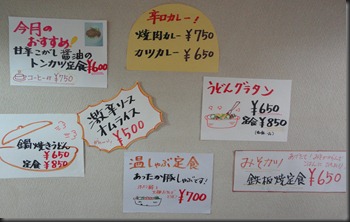 今月の
おすすめ!
甘辛こがし醤油の
トンカツ定食 ¥600
コーヒー付 ¥750
辛口カレー!
焼肉カレー ¥750
カツカレー ¥650
激辛ソース
オムライス
¥500
うどんグラタン
¥650
定食 ¥850
鍋焼きうどん
¥650
定食 ¥850
温しゃぶ定食
あったか豚しゃぶです!
¥700
みそカツ
鉄板焼定食 ¥650